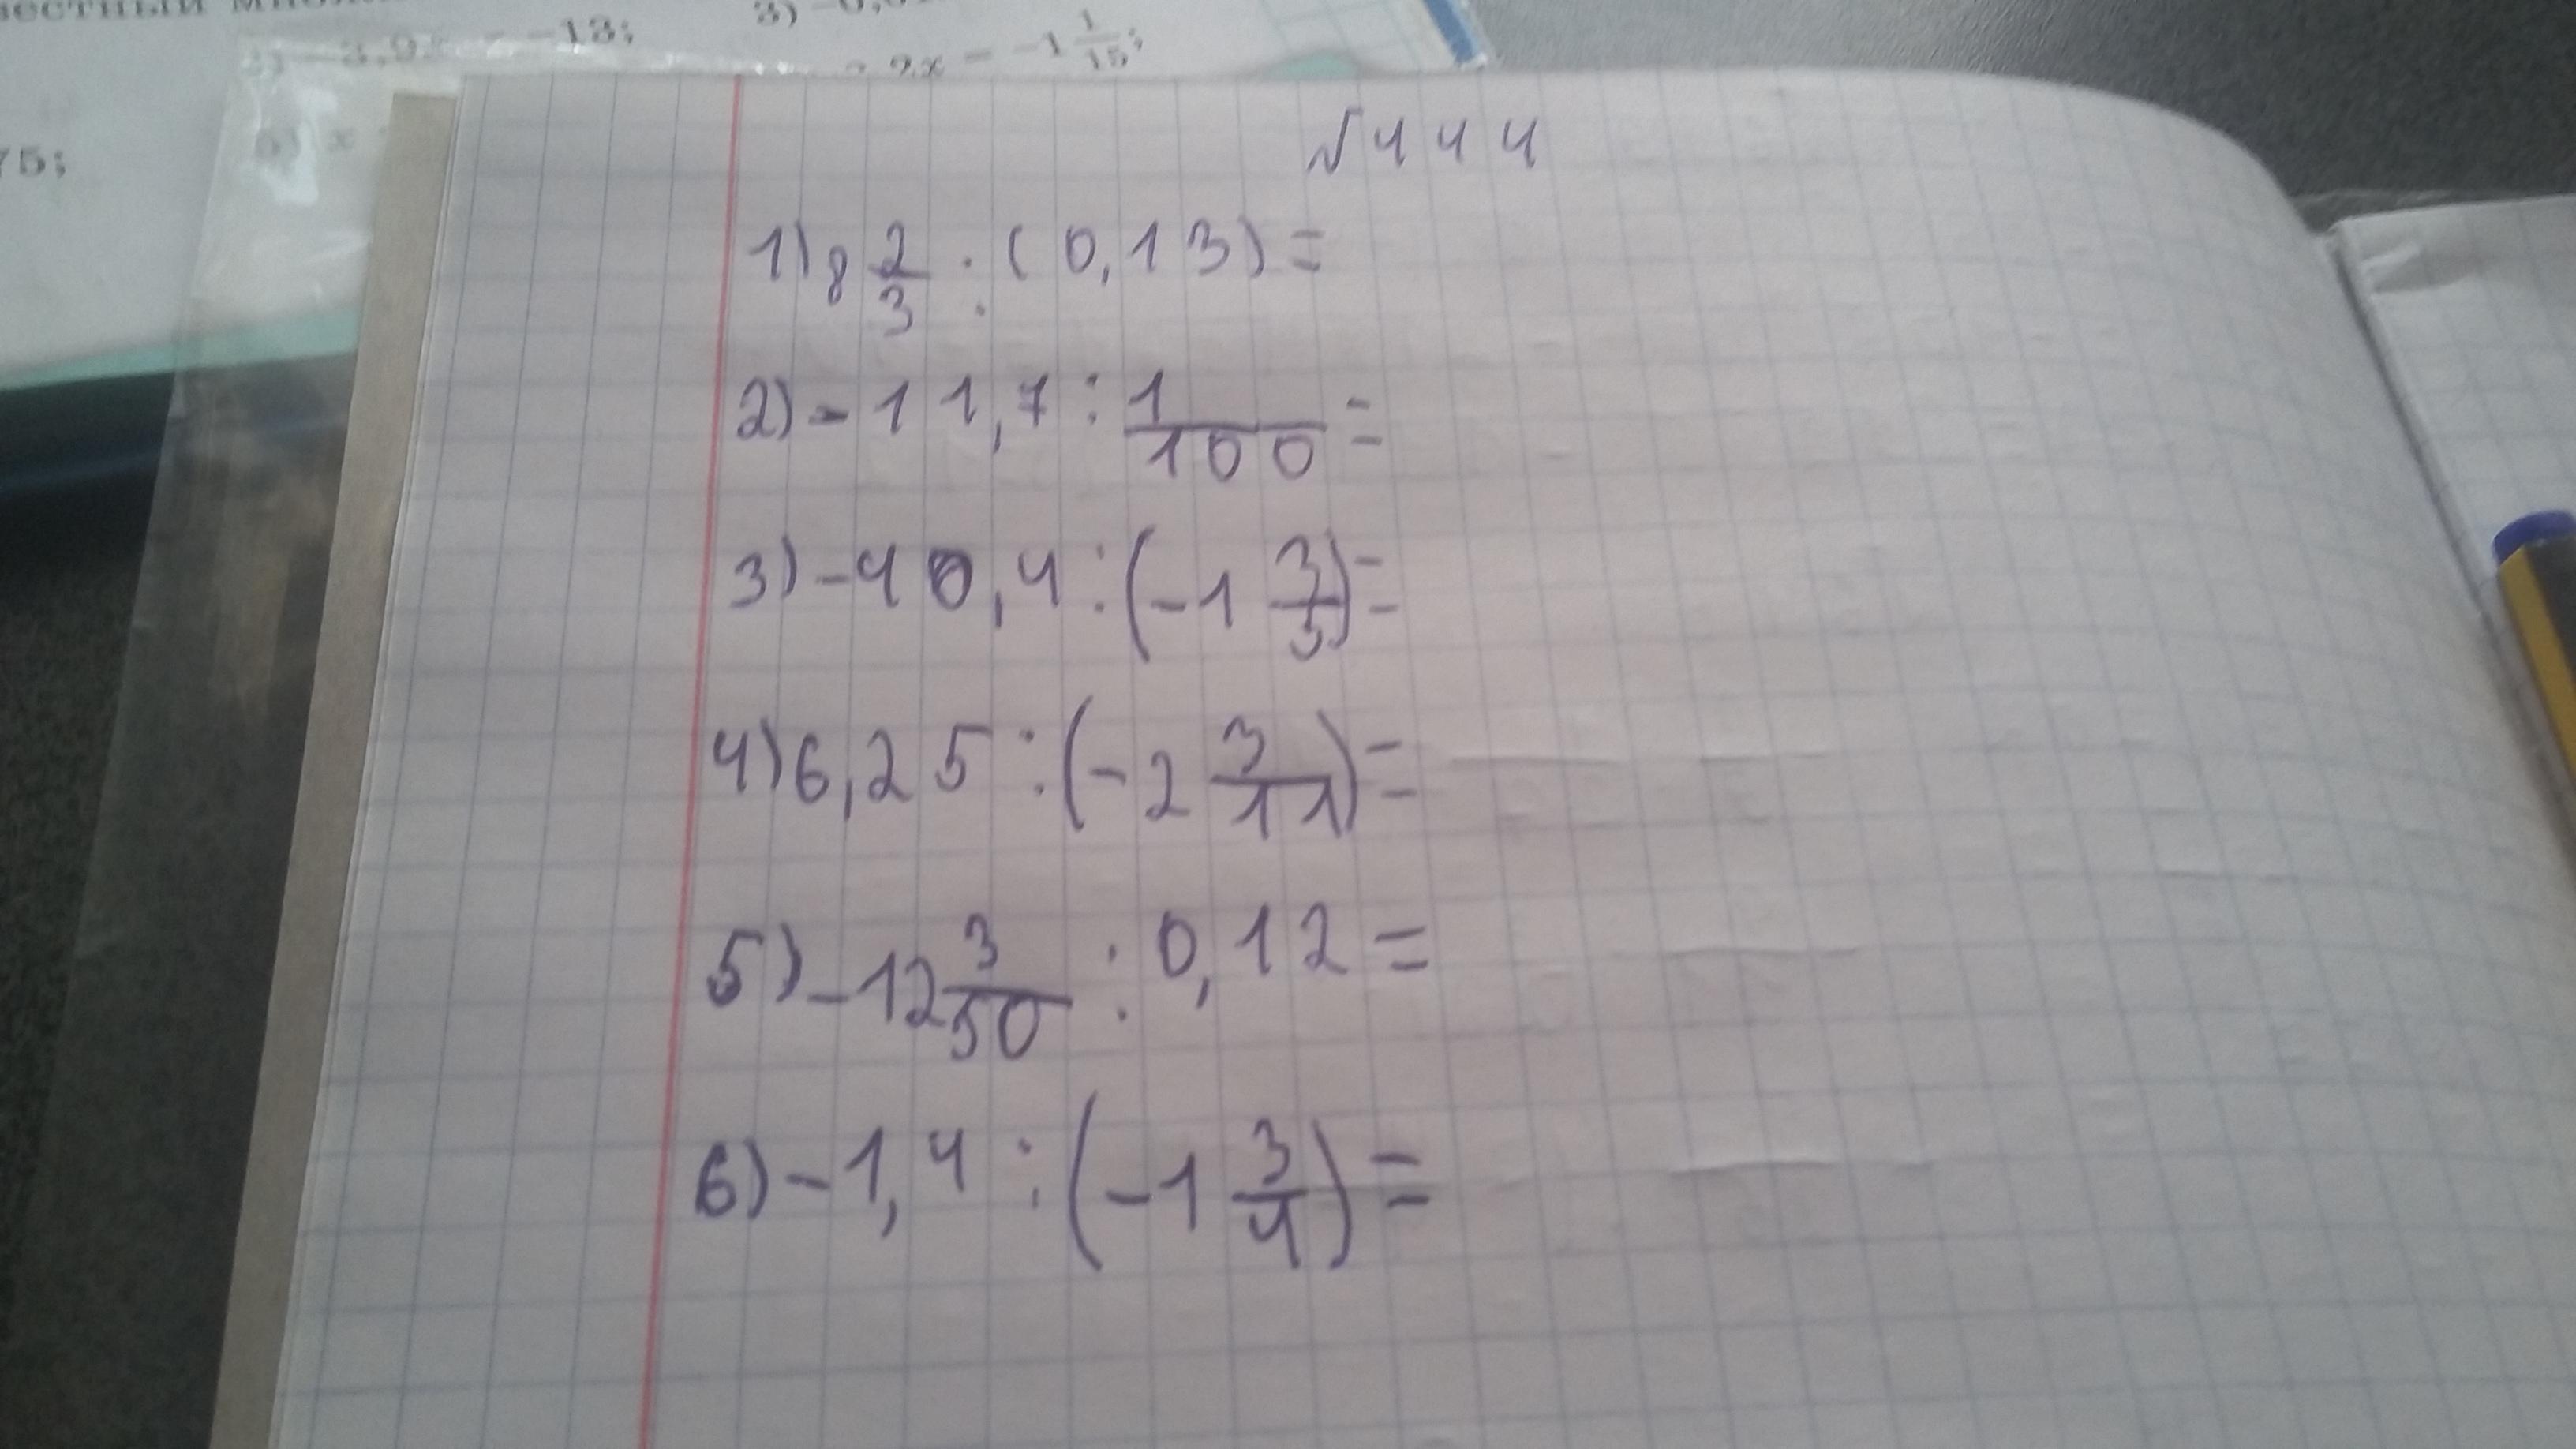 -13;
3)
2x = -1 1/15;
75;
x
№ 444
1) 8 2/3 : (0,13) =
2) -11,7 : 1/100 =
3) -40,4 : (-1 3/5) =
4) 6,25 : (-2 3/11) =
5) -12 3/50 : 0,12 =
6) -1,4 : (-1 3/4) =